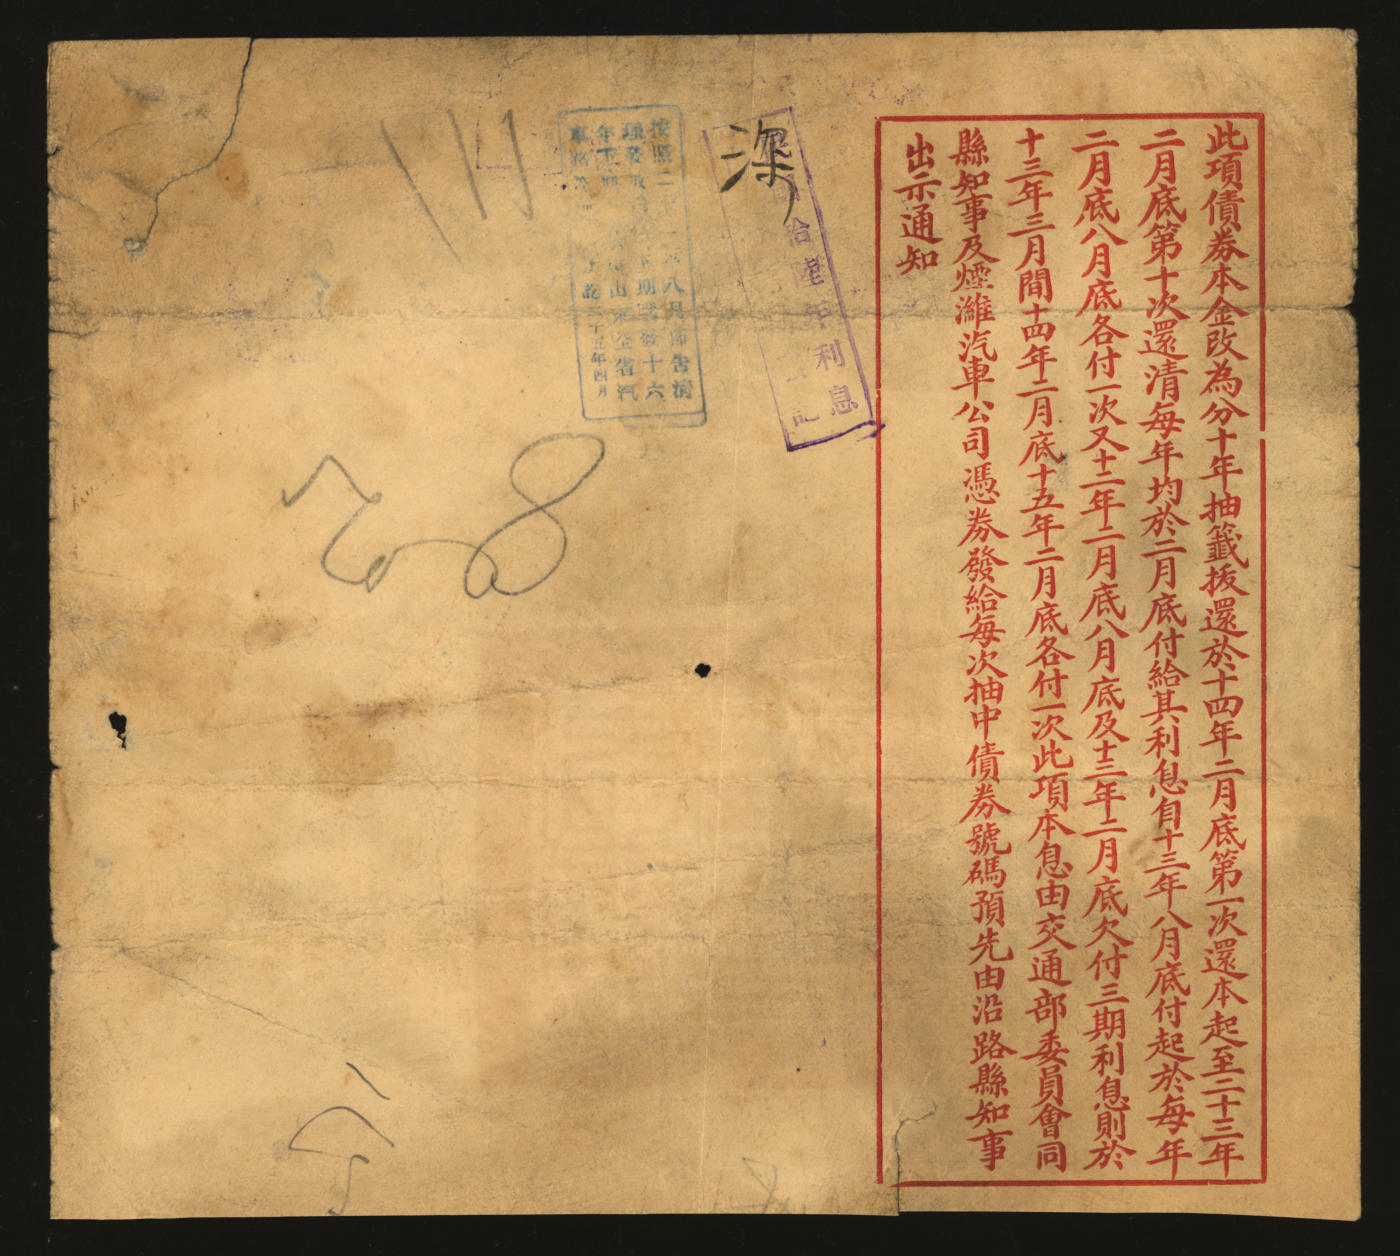 此項債劵本金改為分十年抽籤拔還於十四年二月底第一次還本起至二十三年
二月底第十次還清每年均於二月底付給其利息自十三年八月底付起於每年
二月底八月底各付一次又十二年二月底八月底及十三年二月底欠付三期利息則於
十三年三月間十四年二月底十五年二月底各付一次此項本息由交通部委員會同
縣知事及煙濰汽車公司憑劵發給每次抽中債劵號碼預先由沿路縣知事
出示通知
深
拾陸年利息
記
按照二十 年八月佈告清
期 發十六
年 出 全省汽
車路 記二十五年四月